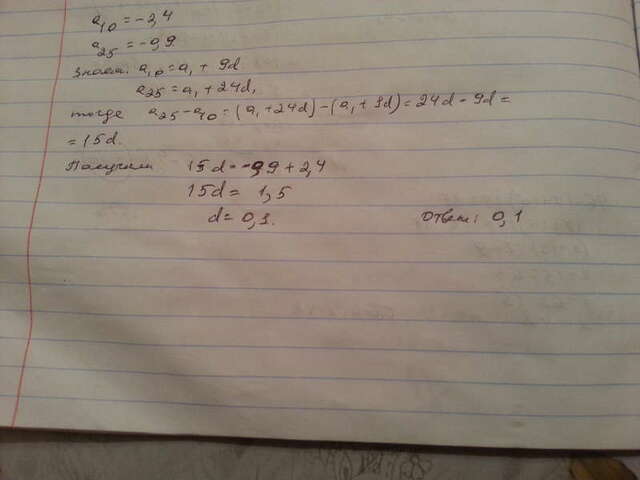 a₁₀ = -2,4
a₂₅ = -0,9
Знаем: a₁₀ = a₁ + 9d
a₂₅ = a₁ + 24d,
тогда a₂₅ - a₁₀ = (a₁ + 24d) - (a₁ + 9d) = 24d - 9d =
= 15d.
Получим 15d = -0,9 + 2,4
15d = 1,5
d = 0,1.
Ответ: 0,1